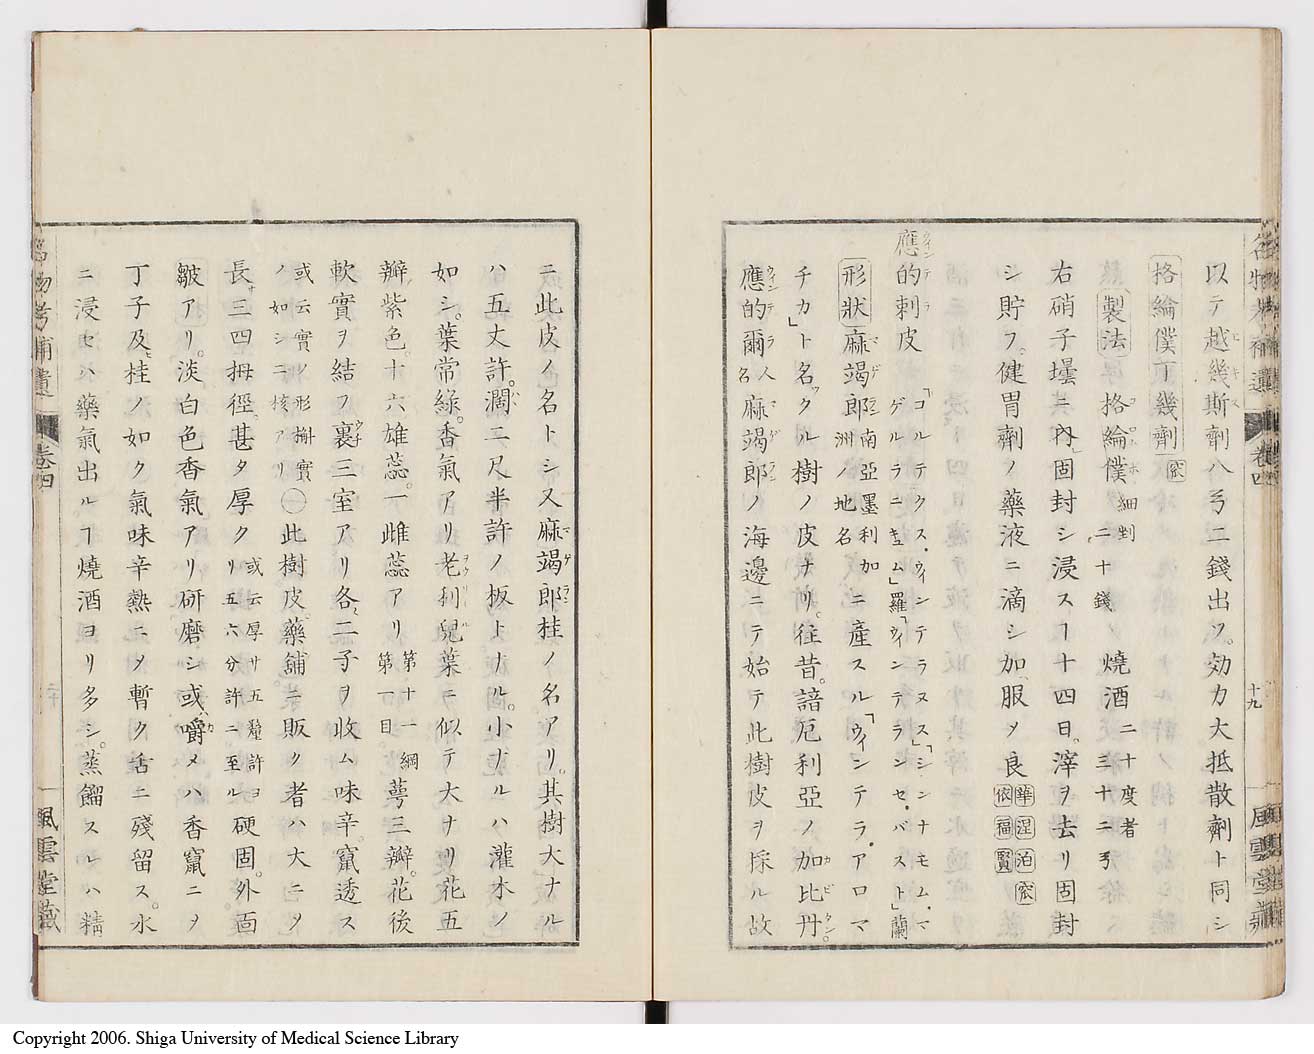 以テ越幾斯劑ハ弓二錢出ツ。効力大抵散劑ト同シ
格綸僕丁幾劑
製法 格綸僕 細剉 二十錢 燒酒 二十度者 三十二弓
右硝子壜ニ内固封シ浸スヿ十四日。滓ヲ去リ固封
シ貯フ。健胃劑ノ藥液ニ滴シ加服メ良 華涅泊窊 依福賢
應的剌皮 「コルテクス・ウィンテラヌス」シンナモムマ ゲルラニキュム」羅「ウィンテラン セ・バスト」蘭
形狀 麻竭郎 南亞墨利加 洲ノ地名 ニ產スル「ウィンテラ・アロマ
チカ」ト名クル樹ノ皮ナリ。往昔。諳厄利亞ノ加比丹
應的爾 人名 麻竭郎ノ海邊ニテ始テ此樹皮ヲ採ル故
名物考補遺 卷四 十九 風雲堂藏
ニ此皮ノ名トシ又麻竭郎桂ノ名アリ。其樹大ナル
ハ五丈許。濶二尺半許ノ板トナル。小ナルハ灌木ノ
如シ。葉常綠。香氣アリ老利兒葉ニ似テ大ナリ花五
瓣紫色。十六雄蕊。一雌蕊アリ 第十一綱 第一目 萼三瓣。花後
軟實ヲ結フ裏三室アリ各二子ヲ收ム味辛。竄透ス
或云實ノ形槲實 ノ如シニ核アリ 此樹皮。藥舖ニ販ク者ハ大ニメ
長三四拇徑。甚タ厚ク 或云厚サ五釐許ヨ リ五六分許ニ至ル 硬固。外面
皺アリ。淡白色香氣アリ研磨シ或嚼メハ香竄ニメ
丁子及桂ノ如ク氣味辛熱ニメ暫ク舌ニ殘留ス。水
ニ浸セハ藥氣出ルヿ燒酒ヨリ多シ。蒸餾スルハ精
名物考補遺 卷四 風雲堂藏
Copyright 2006. Shiga University of Medical Science Library